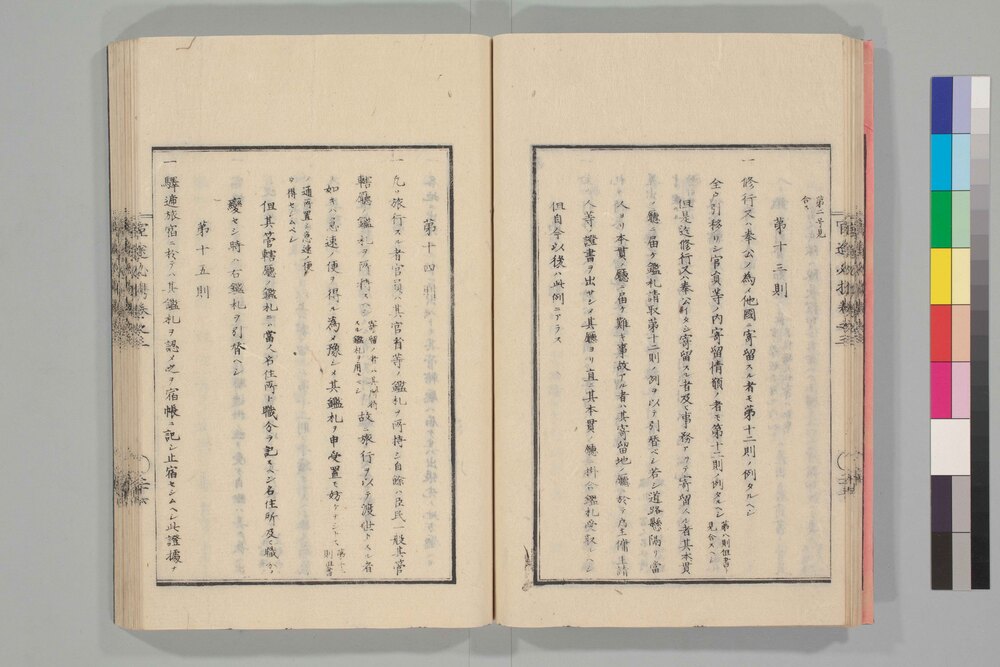 第二号見
合ス
第十三則
一 修行又ハ奉公ノ為メ他國ニ寄留スル者モ第十二則ノ例タルヘシ
全ク引移リシ官員等ノ内寄留情願ノ者モ第十二則ノ例タルヘシ 第八則但書ヲ見合スヘシ
但是迄修行又奉公イタシ寄留スル者及ヒ事務アリテ寄留スル者其本貫
ノ廳ニ届ケ鑑札請取第十二則ノ例ヲ以テ引替ヘシ若シ道路懸隔リ當
人ヨリ本貫ノ廳ニ届ケ難キ事故アル者ハ其寄留地ノ廳ニ於テ雇主傭主請
人等ノ證書ヲ出サシメ其廳ヨリ直ニ其本貫ノ廳ニ掛合鑑札受取ルヘシ
但自今以後ハ此例ニアラス
第十四則
一 凡ソ旅行スル者官員ハ其官省等ノ鑑札ヲ所持シ自餘ハ臣民一般其管
轄廳ノ鑑札ヲ所持スヘシ 寄留ノ者ハ其寄留スル鑑札ヲ用ユヘシ 故ニ旅行ヲ以テ渡世トスル者
ノ如キハ急速ノ便ヲ得ル為メ豫シメ其鑑札ヲ申受置モ妨ケナシトス 第十二則但書
ノ通所置シ急速ノ便
ヲ得セシムヘシ
但其管轄廳ノ鑑札ニハ當人名住所ト職分ヲ記スヘシ名住所及ヒ職分ノ
變セシ時ハ右鑑札ヲ引替ヘシ
第十五則
一 驛逓旅宿ニ於テハ其鑑札ヲ認メ之ヲ宿帳ニ記シ止宿セシムヘシ此證據ヲ